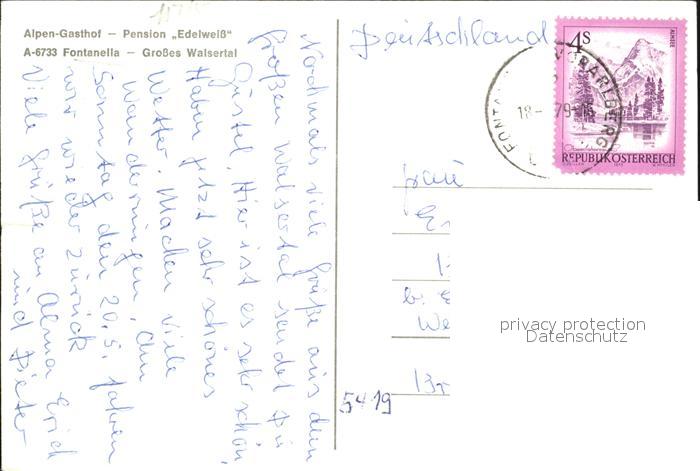 Alpen-Gasthof – Pension „Edelweiß"
A-6733 Fontanella – Großes Walsertal
Nochmals viele Grüße aus dem
Großen Walsertal sendet Dir
Gustel. Hier ist es sehr schön,
Haben jetzt sehr schönes
Wetter. Machen viele
Wanderungen. Am
Sonntag den 20.5. fahren
wir wieder zurück
Viele Grüße an Alma Erich
und Dieter
Deutschland
4S
ALMSEE
REPUBLIK ÖSTERREICH
VORARLBERG
18- 79-15
Frau
b.
We
privacy protection
Datenschutz
5419